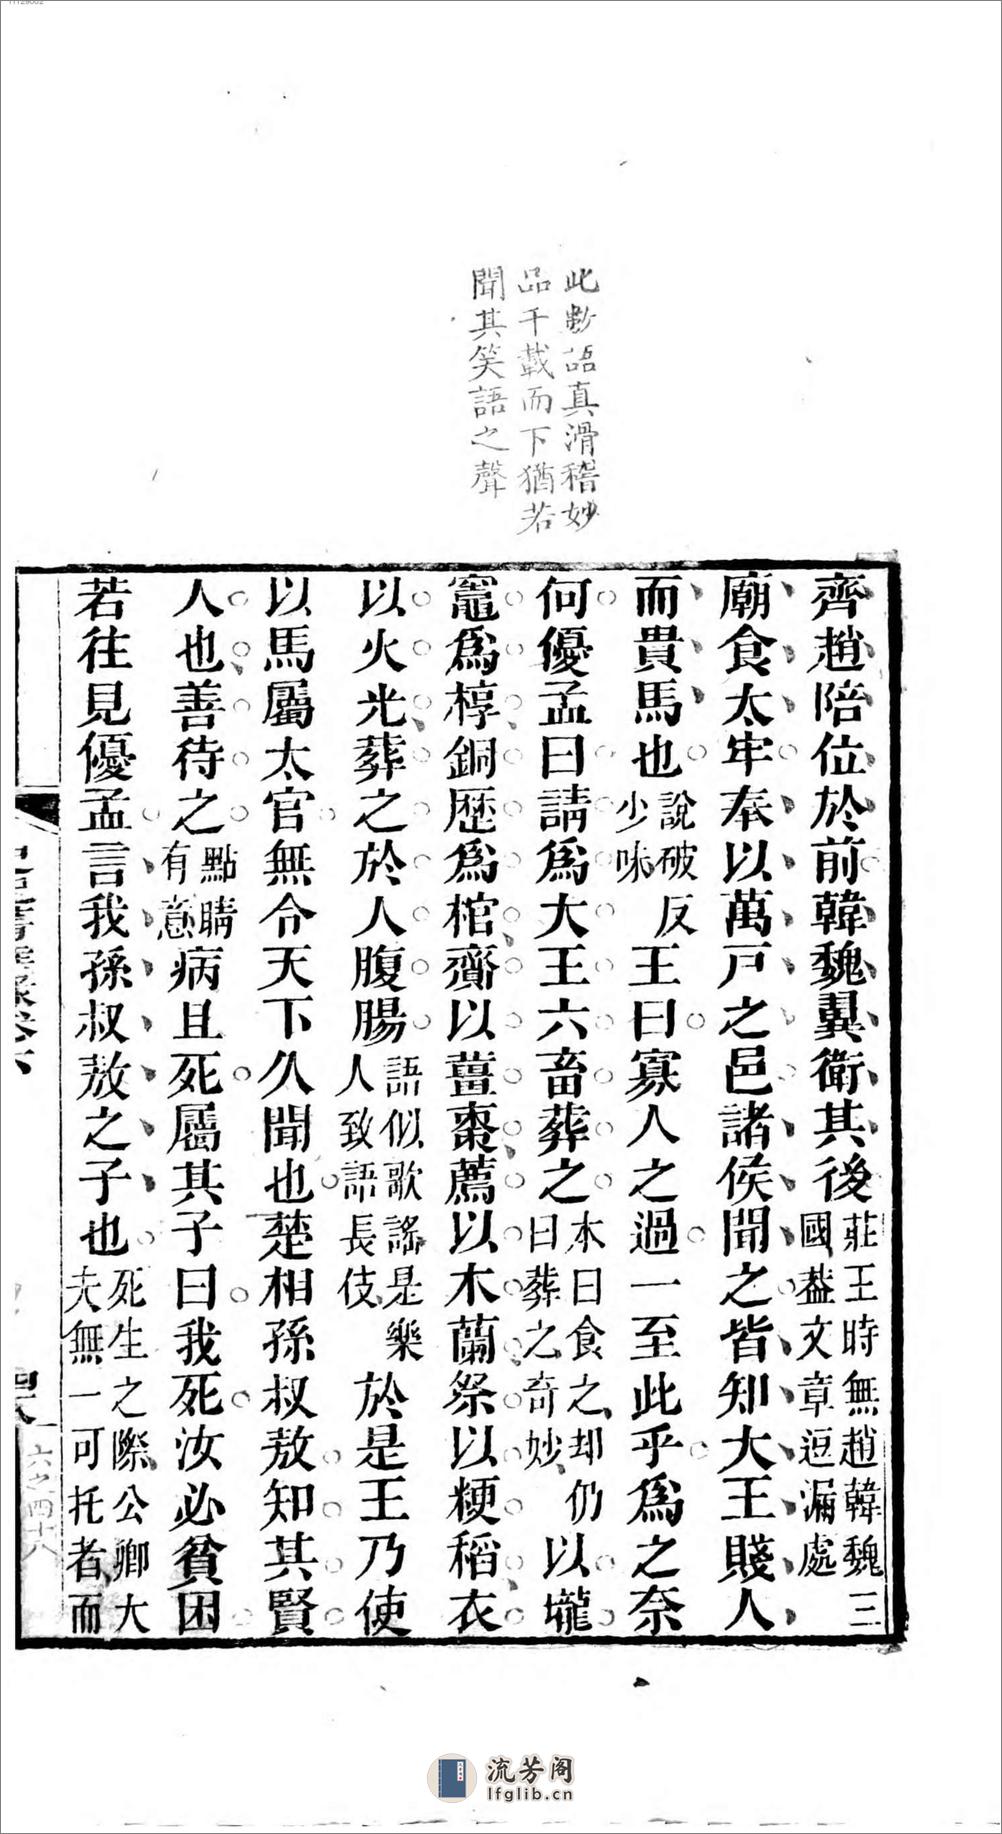 11129002
此數語真滑稽妙
品千載而下猶若
聞其笑語之聲
齊趙陪位於前韓魏翼衛其後莊王時無趙韓魏三國葢文章逗漏處
廟食太牢奉以萬戸之邑諸侯聞之皆知大王賤人
而貴馬也說破反少味王曰寡人之過一至此乎爲之奈
何優孟曰請爲大王六畜葬之本曰食之却仍曰葬之奇妙以壠
竈爲椁銅歷爲棺齎以薑棗薦以木蘭祭以粳稻衣
以火光葬之於人腹腸語似歌謠是樂人致語長伎於是王乃使
以馬屬太官無令天下久聞也楚相孫叔敖知其賢
人也善待之點睛有意病且死屬其子曰我死汝必貧困
若往見優孟言我孫叔敖之子也死生之際公卿大夫無一可托者而
六之四十八
流芳阁
lfglib.cn